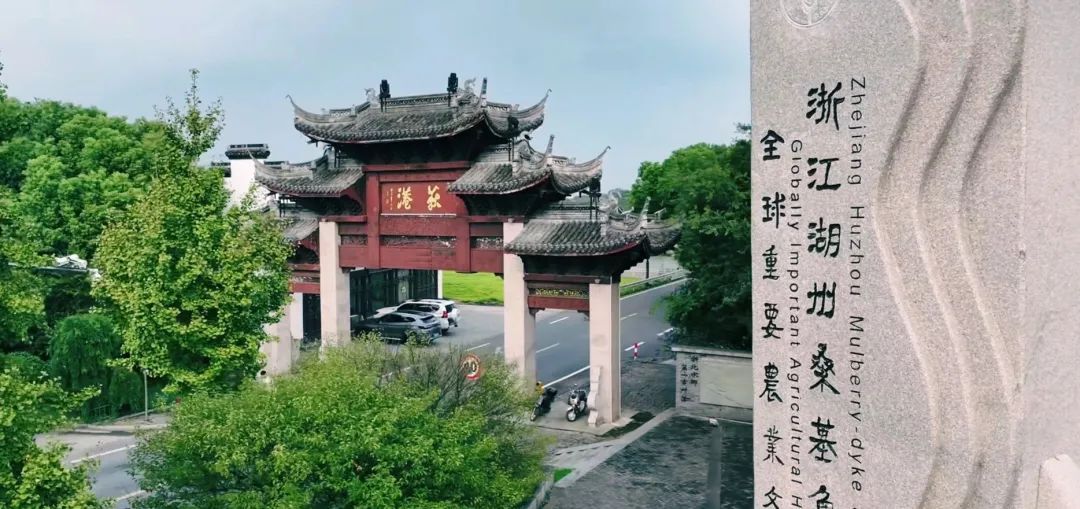 荻港
Zhejiang Huzhou Mulberry-dyke
浙江湖州桑基
Globally Important Agricultural H
全球重要農業文